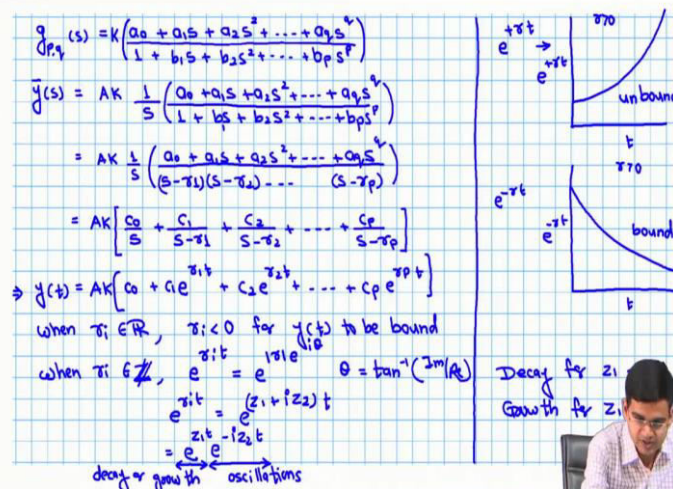 g_{p,q}(s) = K((a0 + a1s + a2s² + ... + aqs^q)/(1 + b1s + b2s² + ... + bps^p))
ȳ(s) = AK 1/s ((a0 + a1s + a2s² + ... + aqs^q)/(1 + b1s + b2s² + ... + bps^p))
= AK 1/s ((a0 + a1s + a2s² + ... + aqs^q)/((s-r1)(s-r2) ... (s-rp)))
= AK[c0/s + c1/(s-r1) + c2/(s-r2) + ... + cp/(s-rp)]
⇒ y(t) = AK[c0 + c1e^{r1t} + c2e^{r2t} + ... + cpe^{rpt}]
when ri ∈ ℝ, ri < 0 for y(t) to be bound
when ri ∈ ℤ, e^{rit} = e^{|r|e^{iθ}} θ = tan⁻¹(Im/Re)
e^{rit} = e^{(z1 + iz2)t}
= e^{z1t} e^{-iz2t}
decay or growth oscillations
e^{+rt} →
r>0
e^{+rt}
unbound
t
r>0
e^{-rt}
e^{-rt}
bound
t
Decay for z1
Growth for z1